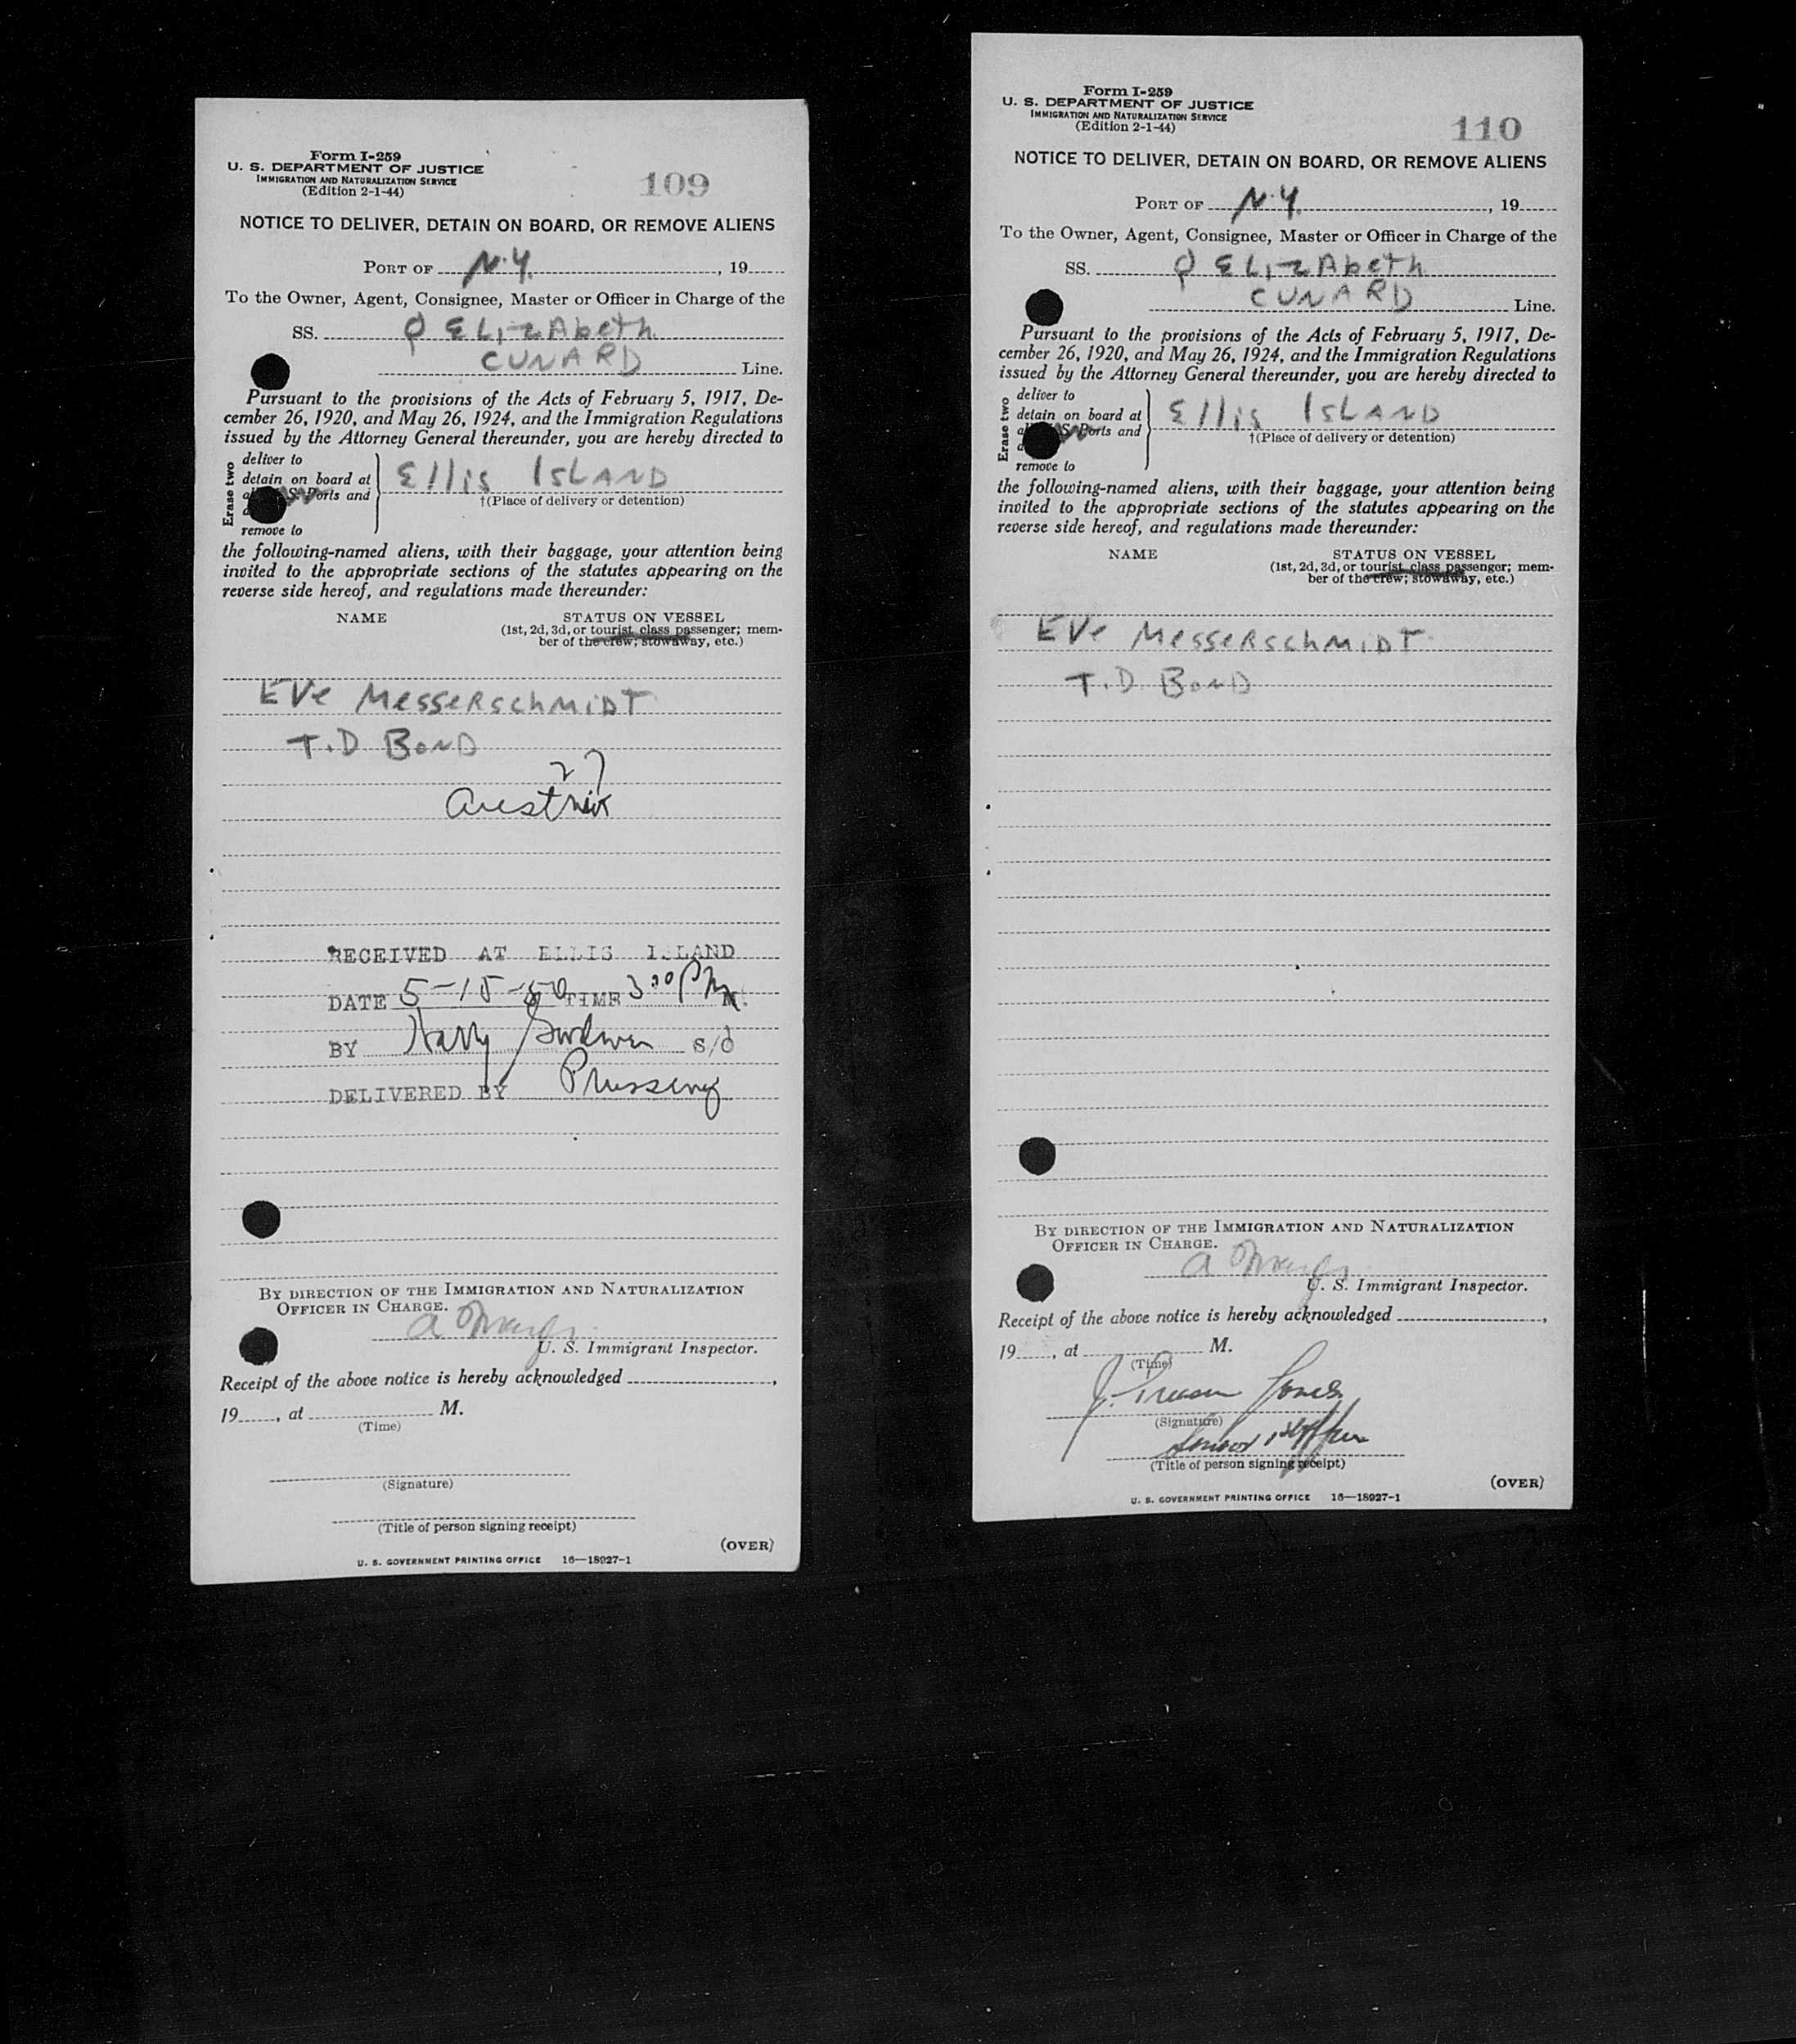 Form I-259
U. S. DEPARTMENT OF JUSTICE
IMMIGRATION AND NATURALIZATION SERVICE
(Edition 2-1-44)
109
NOTICE TO DELIVER, DETAIN ON BOARD, OR REMOVE ALIENS
PORT OF N.Y. , 19
To the Owner, Agent, Consignee, Master or Officer in Charge of the
SS. Q ELIZAbeth
CUNARD Line.
Pursuant to the provisions of the Acts of February 5, 1917, De-
cember 26, 1920, and May 26, 1924, and the Immigration Regulations
issued by the Attorney General thereunder, you are hereby directed to
Erase two
deliver to
detain on board at
S. Ports and
remove to
Ellis ISLAND
†(Place of delivery or detention)
the following-named aliens, with their baggage, your attention being
invited to the appropriate sections of the statutes appearing on the
reverse side hereof, and regulations made thereunder:
NAME STATUS ON VESSEL
(1st, 2d, 3d, or tourist class passenger; mem-
ber of the crew; stowaway, etc.)
EVe MesseRschMiDT
T.D BonD
27
Austria
RECEIVED AT ELLIS ISLAND
DATE 5-15-50 TIME 3:00 PM M.
BY Harry S/O
DELIVERED BY Prussing
BY DIRECTION OF THE IMMIGRATION AND NATURALIZATION
OFFICER IN CHARGE.
U. S. Immigrant Inspector.
Receipt of the above notice is hereby acknowledged ,
19 , at M.
(Time)
(Signature)
(Title of person signing receipt)
(OVER)
U. S. GOVERNMENT PRINTING OFFICE 16—18927-1
Form I-259
U. S. DEPARTMENT OF JUSTICE
IMMIGRATION AND NATURALIZATION SERVICE
(Edition 2-1-44)
110
NOTICE TO DELIVER, DETAIN ON BOARD, OR REMOVE ALIENS
PORT OF N.Y. , 19
To the Owner, Agent, Consignee, Master or Officer in Charge of the
SS. Q ELIZAbeth
CUNARD Line.
Pursuant to the provisions of the Acts of February 5, 1917, De-
cember 26, 1920, and May 26, 1924, and the Immigration Regulations
issued by the Attorney General thereunder, you are hereby directed to
Erase two
deliver to
detain on board at
S. Ports and
remove to
Ellis ISLAND
†(Place of delivery or detention)
the following-named aliens, with their baggage, your attention being
invited to the appropriate sections of the statutes appearing on the
reverse side hereof, and regulations made thereunder:
NAME STATUS ON VESSEL
(1st, 2d, 3d, or tourist class passenger; mem-
ber of the crew; stowaway, etc.)
EVe MesseRschMiDT
T.D BonD
BY DIRECTION OF THE IMMIGRATION AND NATURALIZATION
OFFICER IN CHARGE.
U. S. Immigrant Inspector.
Receipt of the above notice is hereby acknowledged ,
19 , at M.
(Time)
Jones
(Signature)
(Title of person signing receipt)
(OVER)
U. S. GOVERNMENT PRINTING OFFICE 16—18927-1